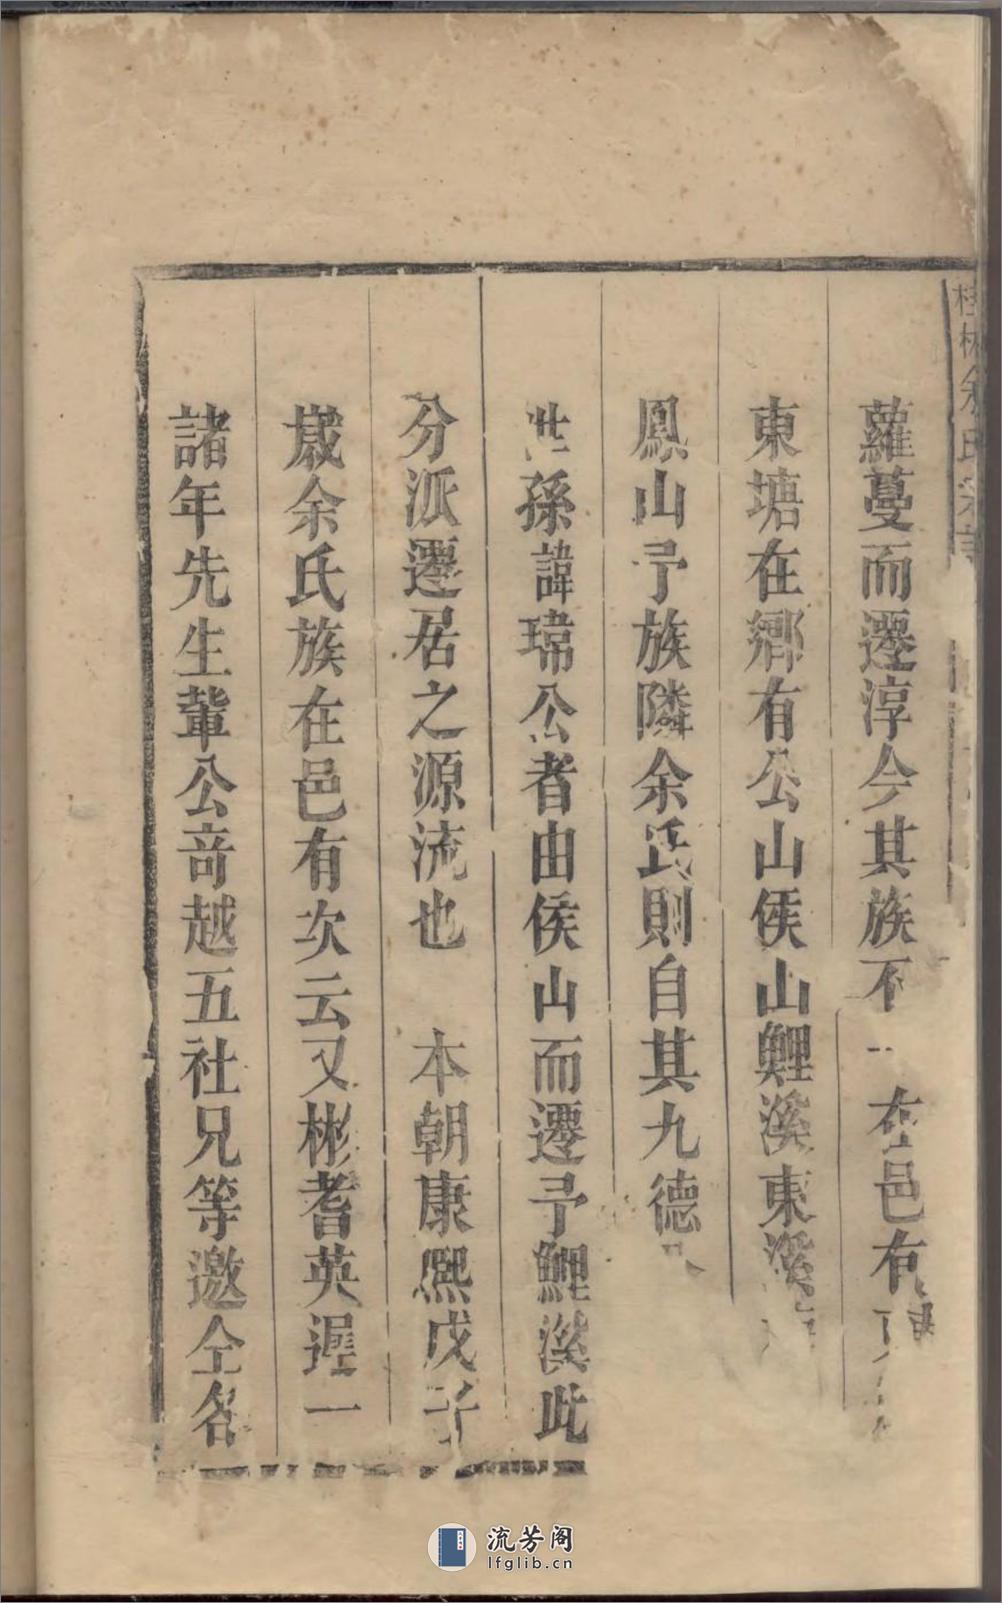 桂林余氏宗譜
蘿蔓而遷淳今其族不一在邑有東
東塘在鄉有公山侯山鯉溪東溪
鳳山予族隣余氏則自其九德
世孫諱瑺公者由侯山而遷予鯉溪此
分派遷居之源流也　本朝康熙戊子
歲余氏族在邑有次云又彬耆英遲一
諸年先生輩公音越五社兄等邀仝名
流芳阁
lfglib.cn